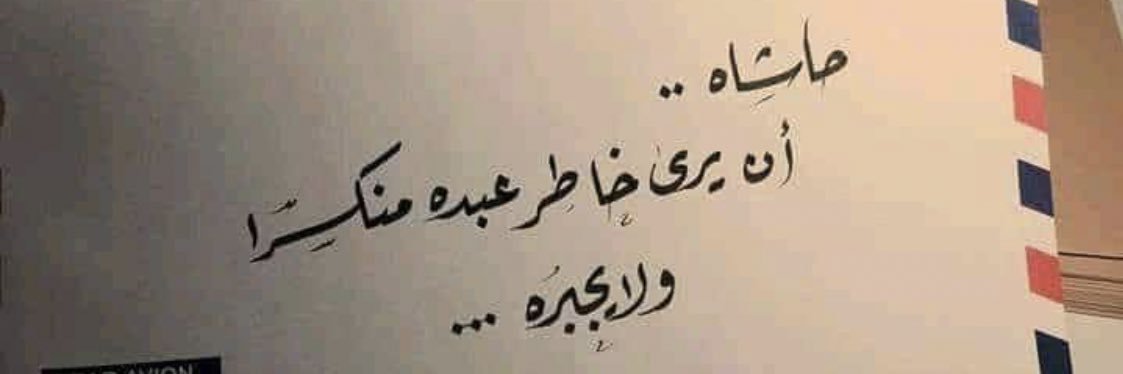 حاشاه ..
أن يرى خاطر عبده منكسِرًا
ولا يجبرُه ...
AVION